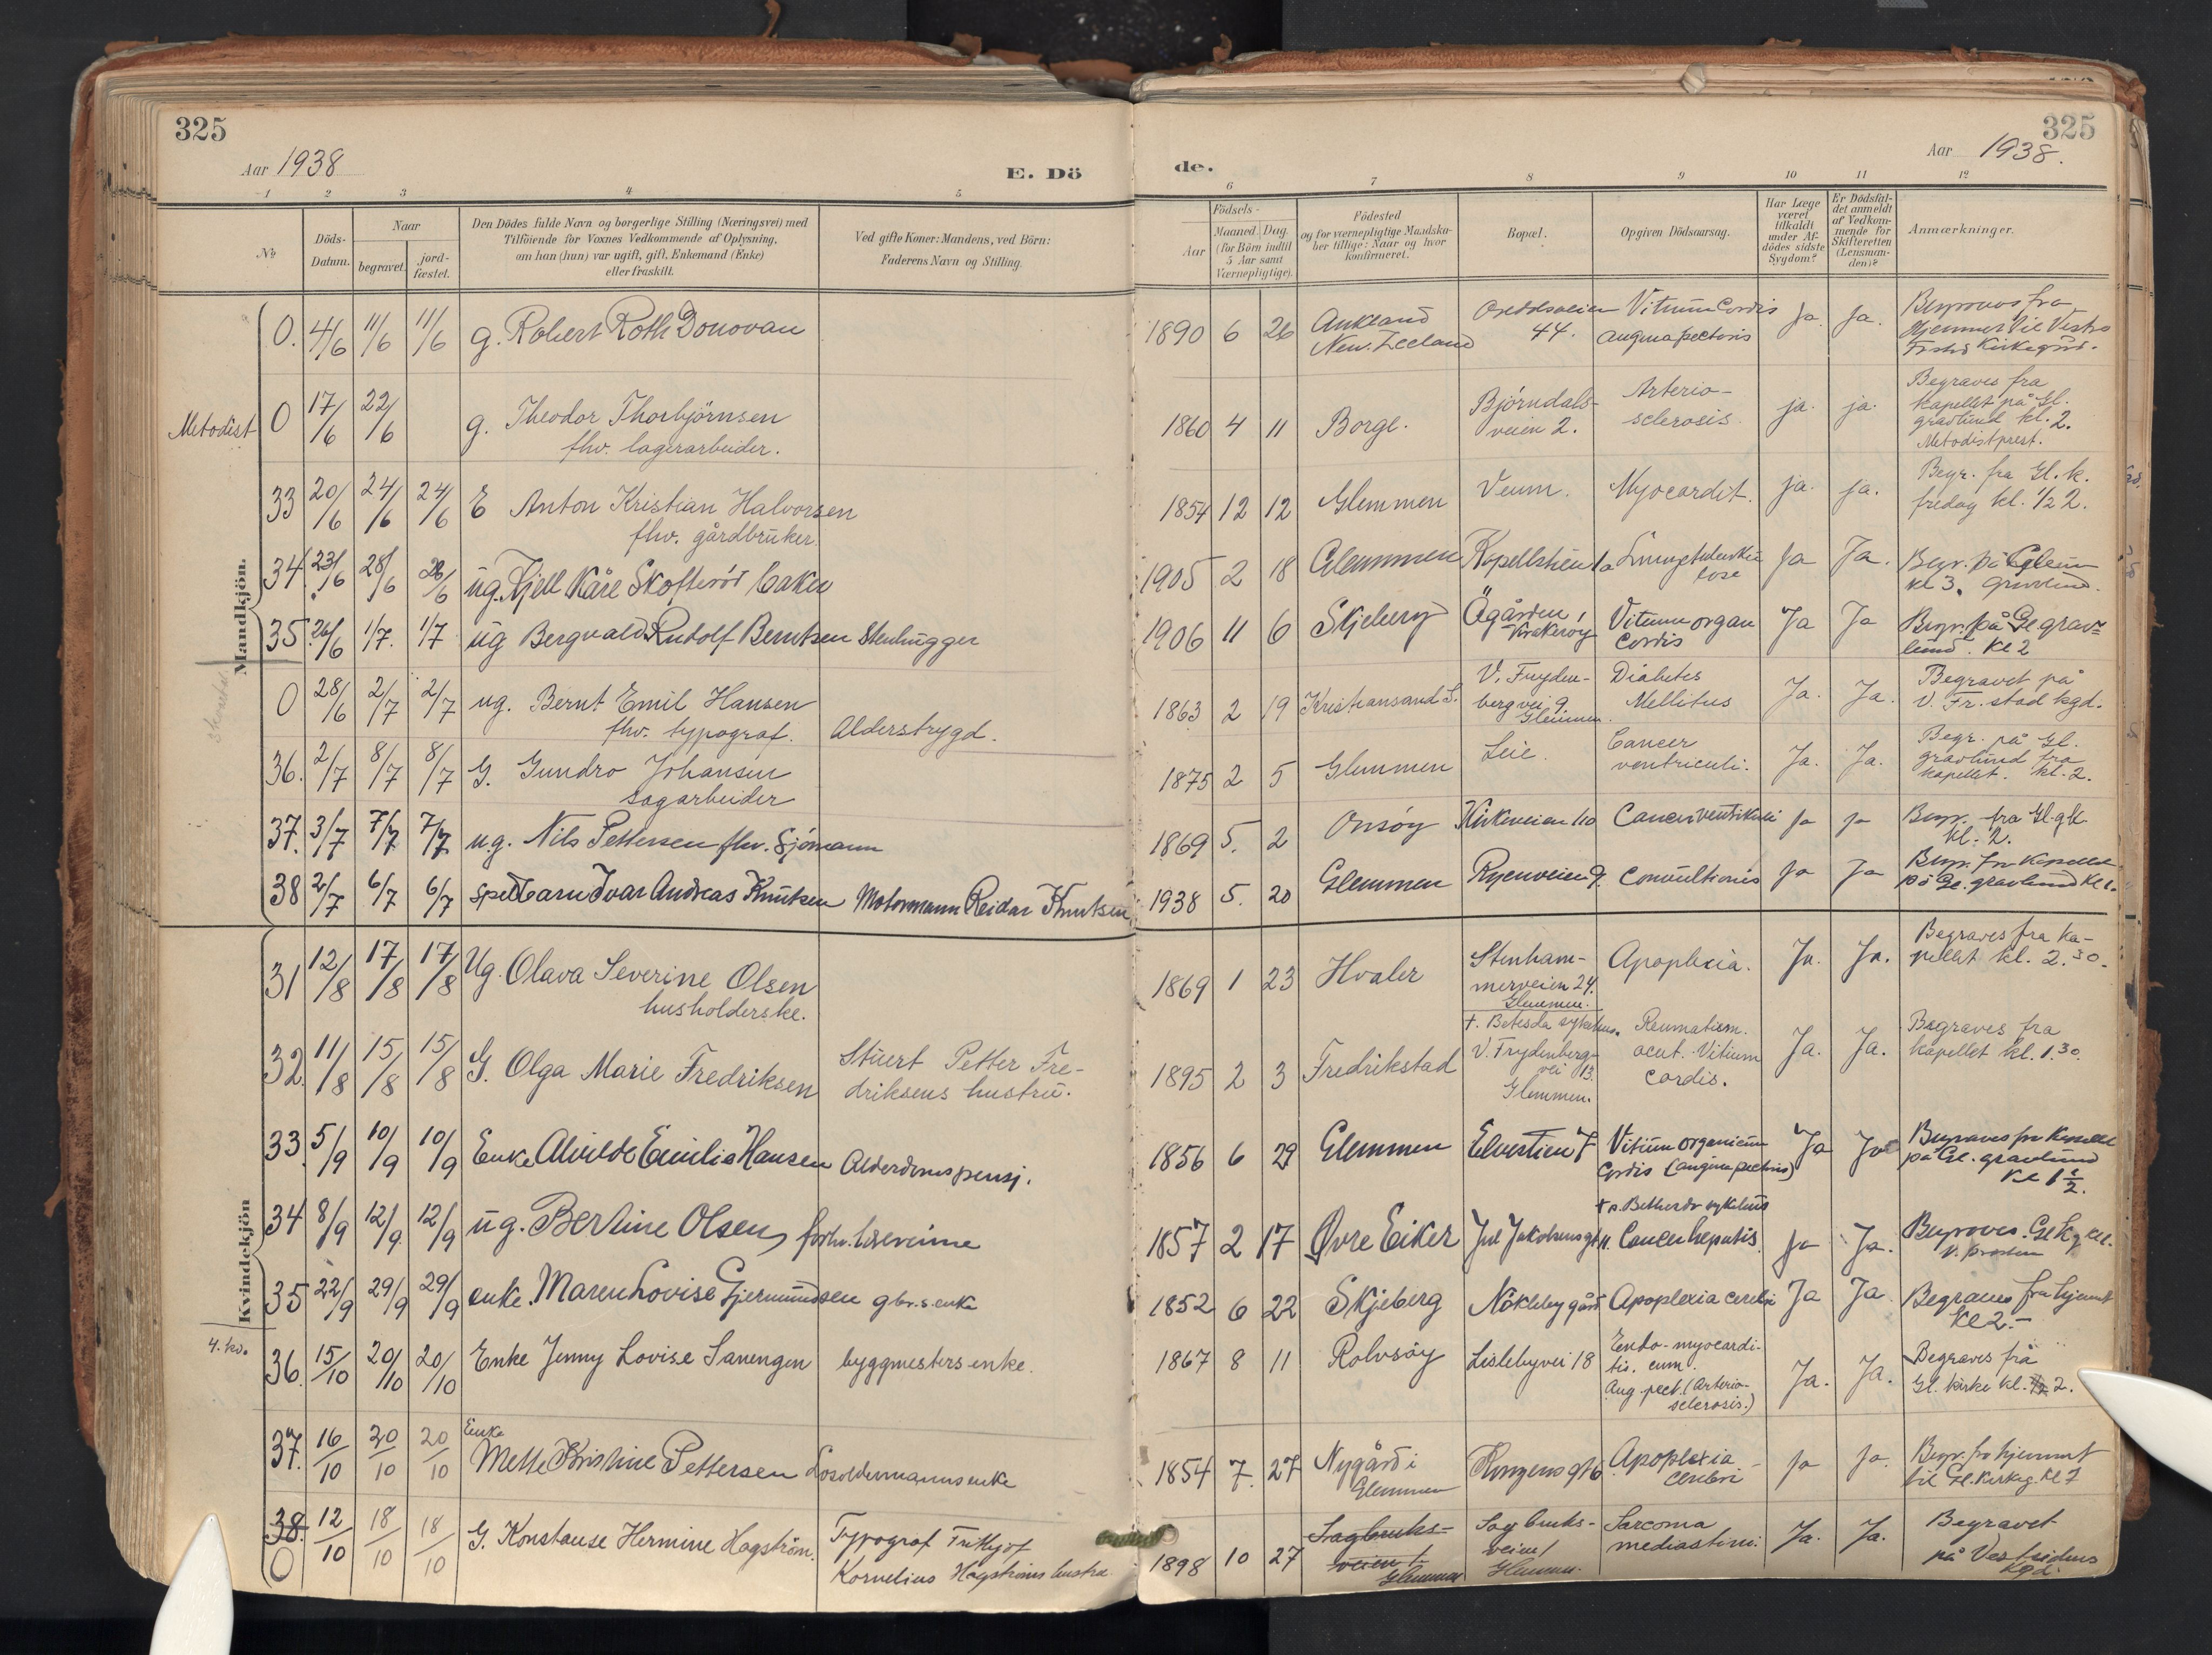 325
Aar 1938
E. Dö
de.
325
Aar 1938.
1 2 3 4 5 6 7 8 9 10 11 12
№
Döds-
Datum.
Naar
begravet.
jord-
fæstet.
Den Dödes fulde Navn og borgerlige Stilling (Næringsvei) med
Tilföiende for Voxnes Vedkommende af Oplysning,
om han (hun) var ugift, gift, Enkemand (Enke)
eller fraskilt.
Ved gifte Koner: Mandens, ved Börn:
Faderens Navn og Stilling.
Födsels-
Aar
Maaned. Dag.
(for Börn indtil
5 Aar samt
Værnepligtige).
Födested
og for værnepligtige Mandska-
ber tillige: Naar og hvor
konfirmeret.
Bopæl.
Opgiven Dödsaarsag.
Har Læge
været
tilkaldt
under Af-
dödes sidste
Sygdom?
Er Dödsfal-
det anmeldt
af Vedkom-
mende for
Skifteretten
(Lensman-
den)?
Anmærkninger.
Mandkjön.
0. 4/6 11/6 11/6 g. Robert Roth Donovan
1890 6 26 Aukland
New. Zeeland
44.
Vitium Cordis
angina pectoris
Ja. Ja.
Begraves fra
Hjemmet til Vestre
Fr.stad Kirkegård.
Metodist 0 17/6 22/6 g. Theodor Thorbjörnsen
fhv. lagerarbeider.
1860 4 11 Borge.
Bjørndals-
veien 2.
Arterio-
sclerosis.
ja. ja.
Begraves fra
kapellet på Gl.
gravlund kl. 2.
Metodistprest.
33 20/6 24/6 24/6 E Anton Kristian Halvorsen
fhv. gårdbruker.
1854 12 12 Glemmen Veum. Myocardit. ja. ja.
Begr. fra Gl. k.
fredag kl. 1/2 2.
34. 23/6 28/6 28/6 ug. Kjell Kåre Skofterød
1905 2 18 Glemmen Kapellstien 1a
Ja Ja.
Begr. på Glem
kl 3. gravlund.
35 26/6 1/7. 1/7 ug Bergvald Rudolf Berntsen Stenhugger
1906 11 6 Skjeberg Ögården,
Kråkerøy
Vitium organ
Cordis
Ja Ja
Begr. på Gl grav-
lund. Kl 2
0 28/6 2/7 2/7 ug. Bernt Emil Hansen
fhv. typograf. Alderstrygd.
1863 2 19 Kristiansand S.
V. Fryden-
berg vei 9.
Glemmen.
Diabetes
Mellitus
Ja. Ja.
Begravet på
V. Fr.stad kgd.
36. 2/7 8/7 8/7 G. Gundro Johansen
sagarbeider
1875 2 5 Glemmen Leie.
Cancer
ventriculi.
Ja. Ja.
Begr. på Gl.
gravlund fra
kapellet. kl. 2.
37. 3/7 7/7 7/7 ug. Nils Pettersen fhv. Sjömann
1869 5. 2 Onsøy Kirkeveien 110 Cancer ventrikuli Ja ja
Begr. fra Gl.gk
kl. 2.
38 2/7 6/7 6/7 spedbarn Ivar Andreas Knutsen Motormann Reidar Knutsen
1938 5. 20 Glemmen Ryenveien 9. Convultionis Ja Ja
Begr. fra Kapellet
på Gl. gravlund
Kvindekjön
31 12/8 17/8 17/8 Ug. Olava Severine Olsen
husholderske.
1869 1 23 Hvaler
Stenham-
merveien 24.
Glemmen.
Apoplexia. Ja. Ja.
Begraves fra ka-
pellet kl. 2.30.
32. 11/8 15/8 15/8 G. Olga Marie Fredriksen
Stuert Petter Fre-
driksens hustru.
1895 2 3 Fredrikstad
+. Betesda sykehus.
V. Frydenberg-
vei 13.
Glemmen.
Reumatism.
acut. Vitium
cordis.
Ja. Ja.
Begraves fra
kapellet kl. 1.30.
33. 5/9 10/9 10/9 Enke Alvilde Emilie Hansen Alderdomspensj.
1856 6 29 Glemmen Elvestien 7
Vitium organicum
Cordis (angina pectoris)
Ja Ja
Begraves fra Kapellet
på Gl. gravlund
Kl 1 1/2.
34 8/9 12/9 12/9 ug. Bertine Olsen, forhv. lærerinne
1857 2 17 Øvre Eiker
+ p. Bethesda sykehus
Cancer hepatis. Ja Ja.
Begraves.
35 22/9 29/9 29/9 enke. Maren Lovise Gjermundsen gbr.s enke
1852 6 22 Skjeberg Nökleby gård Apoplexia cerebri Ja Ja
Begraves fra hjemmet
Kl 2.-
4. kv.
36. 15/10 20/10 20/10 Enke Jenny Lovise Sanengen byggmesters enke.
1867 8 11 Rolvsøy Lislebyvei 18
Endo-myocardi-
tis. cum.
Ang. pect. (Arterio-
sclerosis.)
Ja. Ja.
Begraves fra
Gl. kirke kl. 2.
37. 16/10 20/10 20/10 Enke
Mette Kristine Pettersen Losoldermanns enke
1854 7. 27 Nygård i
Glemmen
Kongens gt 6
Apoplexia
Cerebri
Ja Ja.
Begr. fra hjemmet
til Gl. Kirkeg. kl 1
38.
0 12/10 18/10 18/10 G. Konstanse Hermine Hagström.
Typograf Frithjof
Kornelius Hagströms hustru.
1898 10 27 Sagbruks-
veien 1.
Glemmen
Sagbruks-
veien 1
Glemmen.
Sarcoma
mediastini.
Ja. Ja.
Begravet
på Vestsidens
kgd.